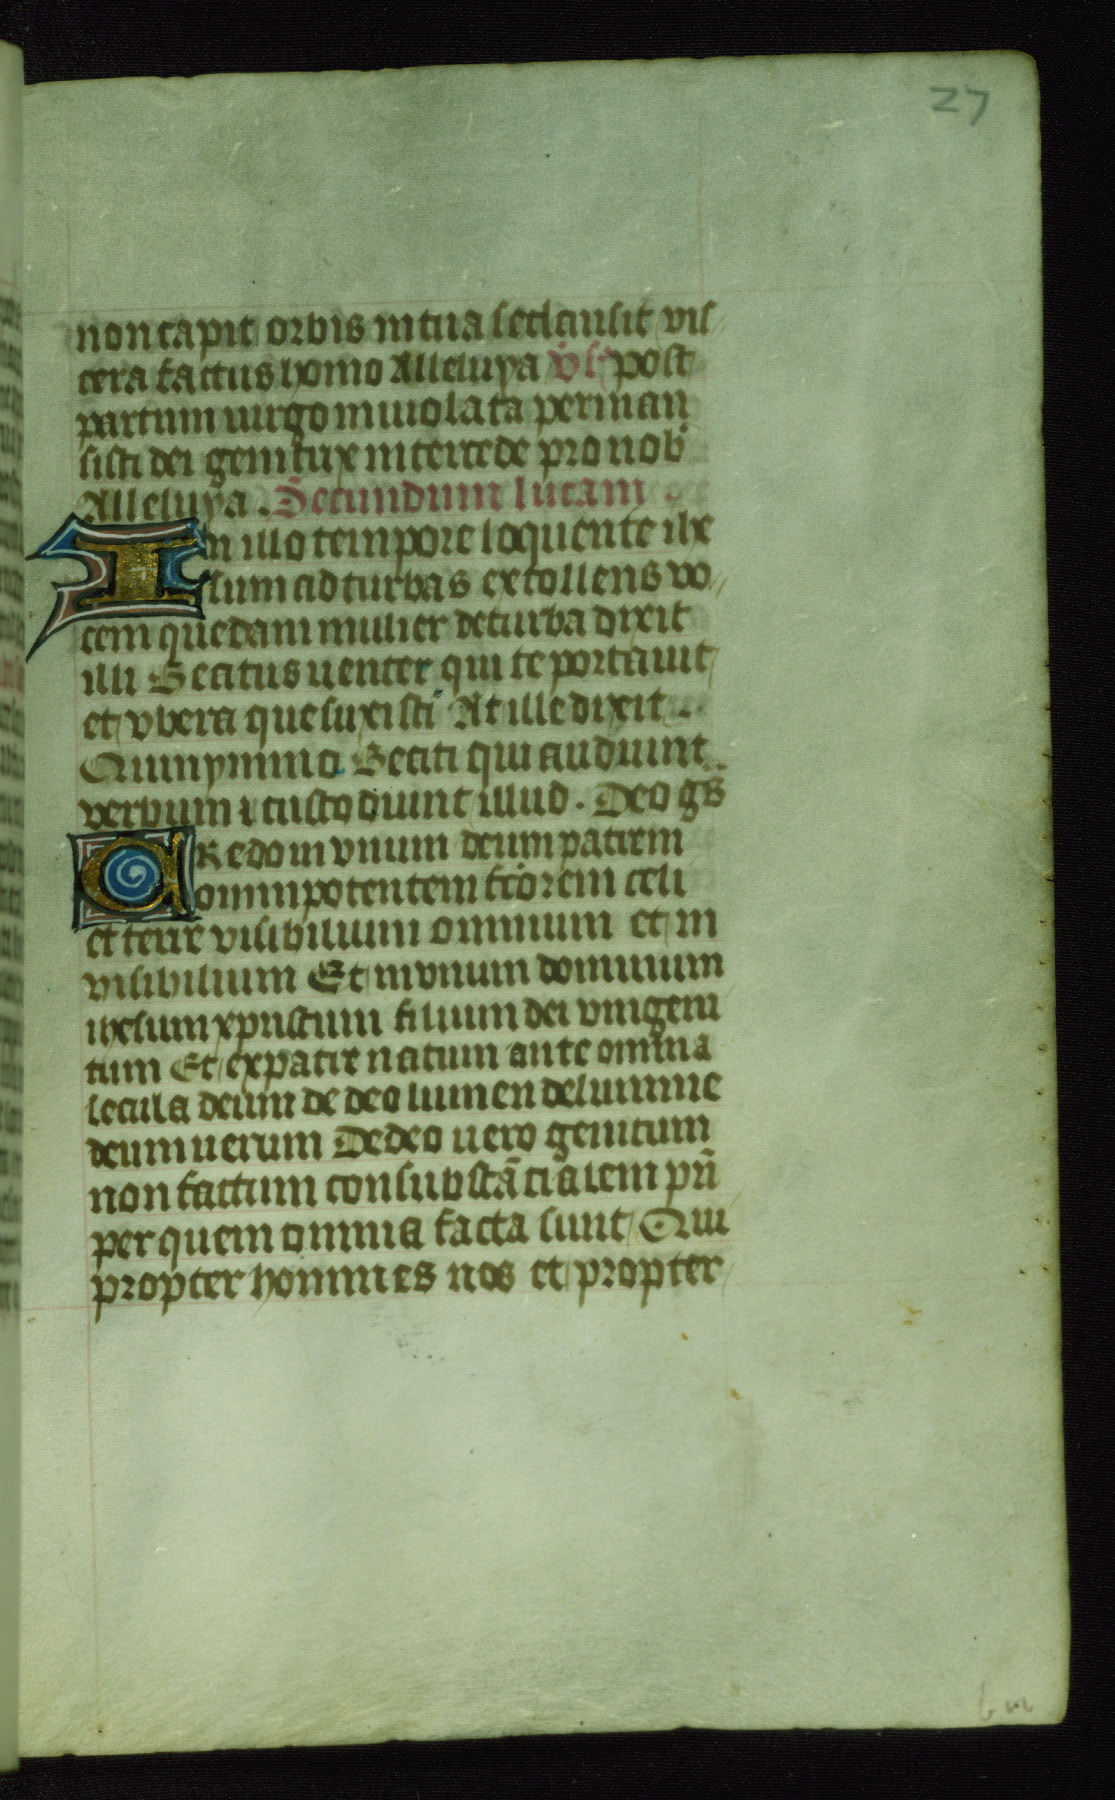 27
non capit orbis in tua se clausit vis
cera factus homo Alleluya v̄s post
partum uirgo inuiolata perman
sisti dei genitrix intercede pro nob
Alleluya. Secundum lucam
In illo tempore loquente ihe
sum ad turbas extollens vo
cem quedam mulier deturba dixit
illi Beatus uenter qui te portauit
et vbera que suxisti At ille dixit
Quinymmo Beati qui audiunt
verbum ⁊ custodiunt illud. Deo gs
CRedo in vnum deum patrem
omnipotentem fc̄orem celi
et terre visibilium omnium et in
visibilium Et in vnum dominum
ihesum xpristum filium dei vnigeni
tum Et ex patre natum ante omnia
secula deum de deo lumen de lumine
deum uerum De deo uero genitum
non factum consubstācialem pr̄i
per quem omnia facta sunt Qui
propter homines nos et propter